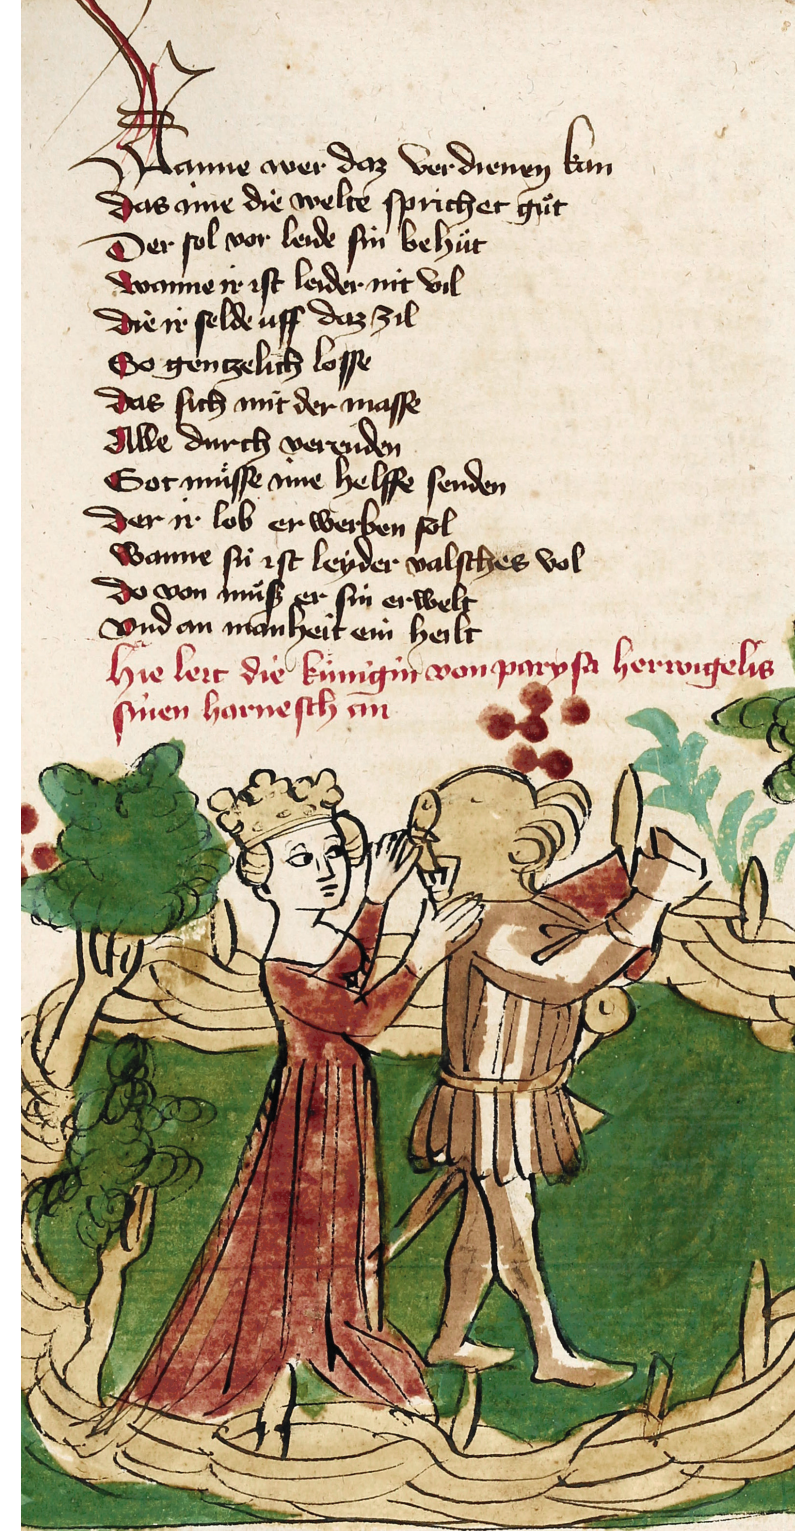 Wanne wer daz verdienen kan
Das ime die welte sprichet gůt
Der sol vor leide sin behůt
Wanne ir ist leider nit vil
Die ir selde uff daz zil
So gentzelich losse
Das sich mit der masse
Alle durch verenden
Got můsse ime helffe senden
Der ir lob erwerben sol
Wanne sú ist leyder valsches vol
Do von můß er sin erwelt
Und an manheit ein helt
Hie leit die kúnigin von parysa herwigelis
sinen harnesch an